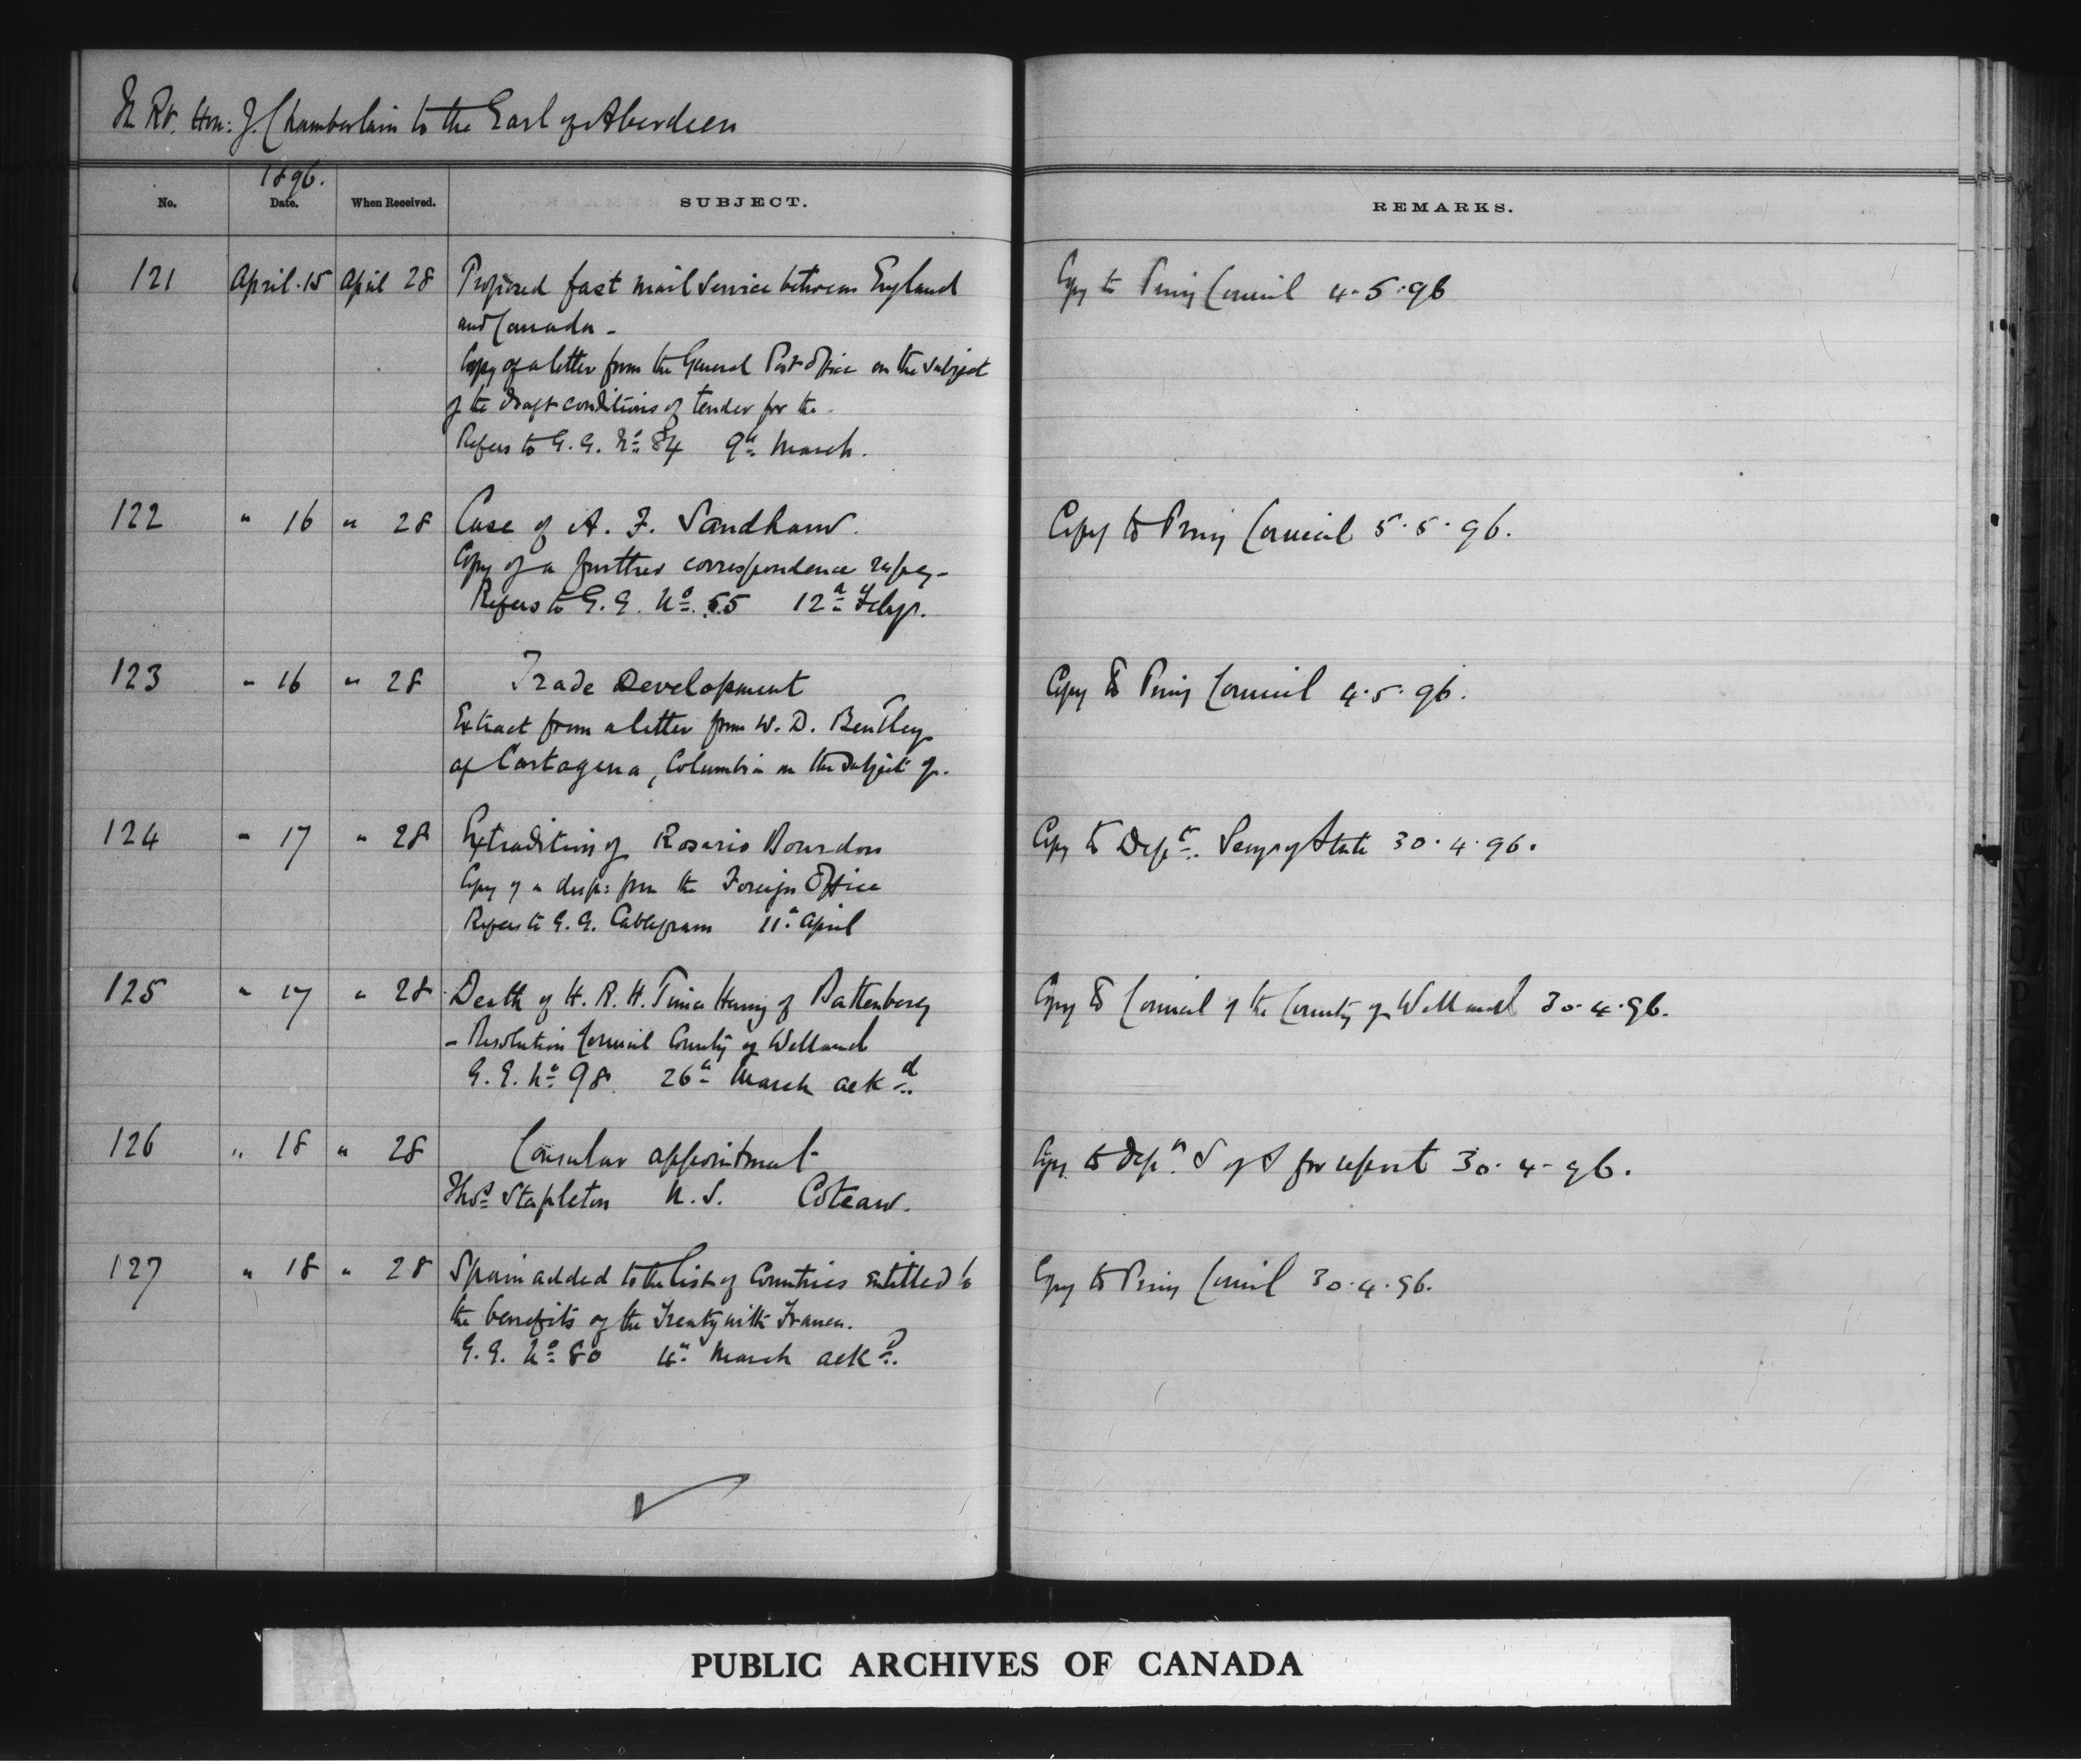 Rt. Hon: J. Chamberlain to the Earl of Aberdeen
1896.
No. Date. When Received. SUBJECT. REMARKS.
121 April 15 April 28 Proposed fast mail service between England Copy to Privy Council 4.5.96
and Canada -
Copy of a letter from the General Post Office on the subject
of the draft conditions of tender for the -
Refers to G. G. No 84 9th March.
122 " 16 " 28 Case of A. F. Sandham. Copy to Privy Council 5.5.96.
Copy of a further correspondence respg-
Refers to G. G. No. 55 12th Feby.
123 " 16 " 28 Trade Development Copy to Privy Council 4.5.96.
Extract from a letter from W. D. Bentley
of Cartagena, Columbia on the subject of.
124 " 17 " 28 Extradition of Rosario Bourdon Copy to Dept. Secy of State 30.4.96.
Copy of a desp: from the Foreign Office
Refers to G. G. Cablegram 11th April
125 " 17 " 28 Death of H. R. H. Prince Henry of Battenberg Copy to Council of the County of Welland 30.4.96.
- Resolution Council County of Welland
G. G. No 98 26th March ackd.
126 " 18 " 28 Consular appointment Copy to Dept. S of S for report 30-4-96.
Thos Stapleton U. S. Coteau.
127 " 18 " 28 Spain added to the list of Countries entitled to Copy to Privy Council 30.4.96.
the benefits of the Treaty with France.
G. G. No 80 4th March ackd.
PUBLIC ARCHIVES OF CANADA